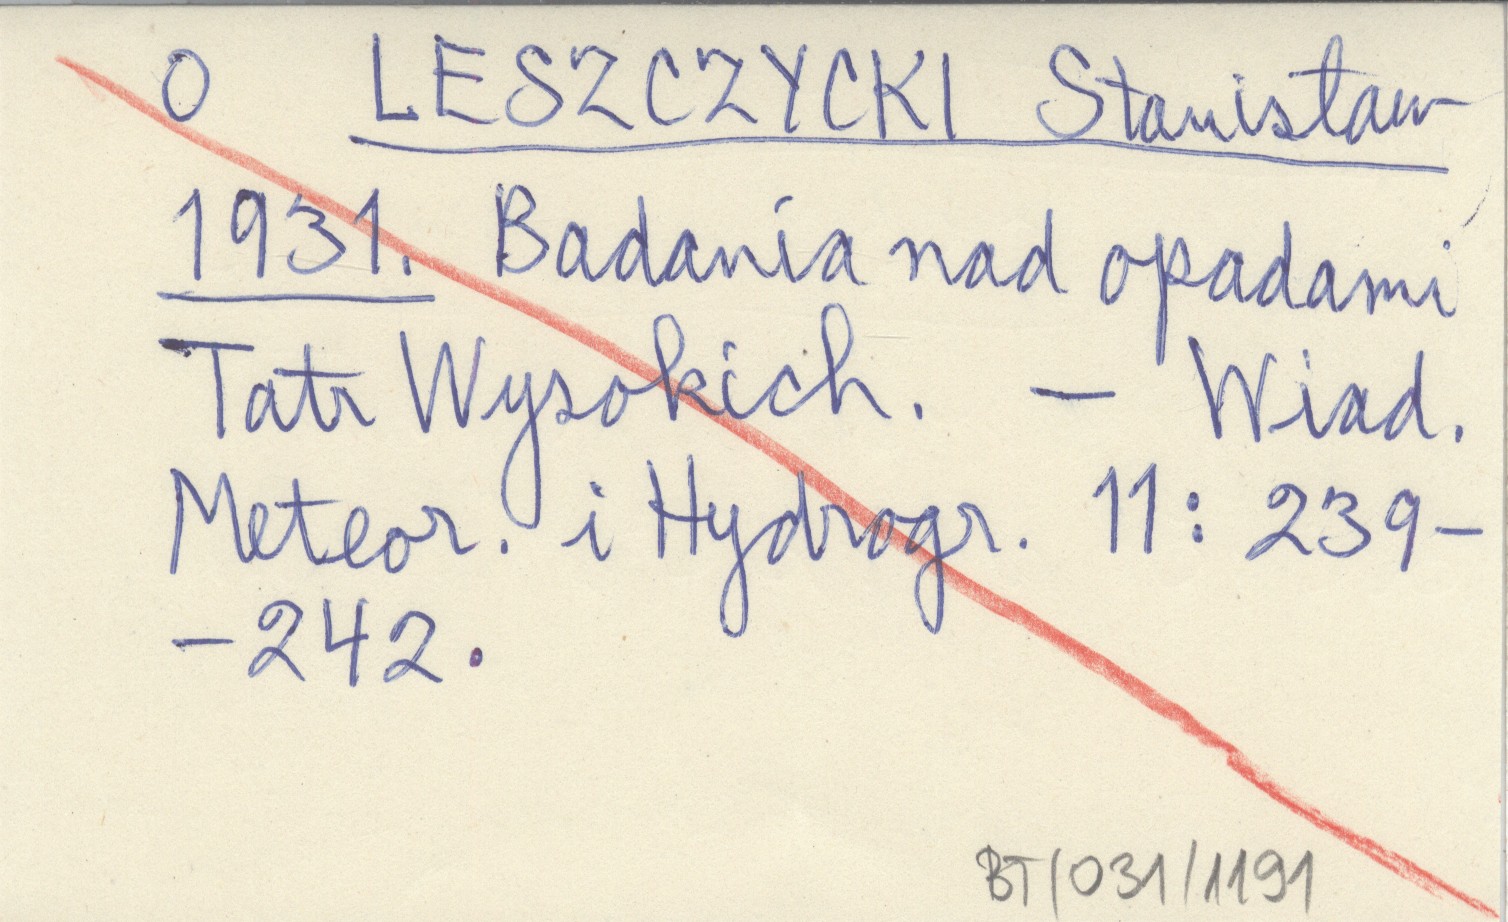 O LESZCZYCKI Stanisław
1931. Badania nad opadami
Tatr Wysokich. — Wiad.
Meteor. i Hydrogr. 11: 239-
-242.
BT/031/1191